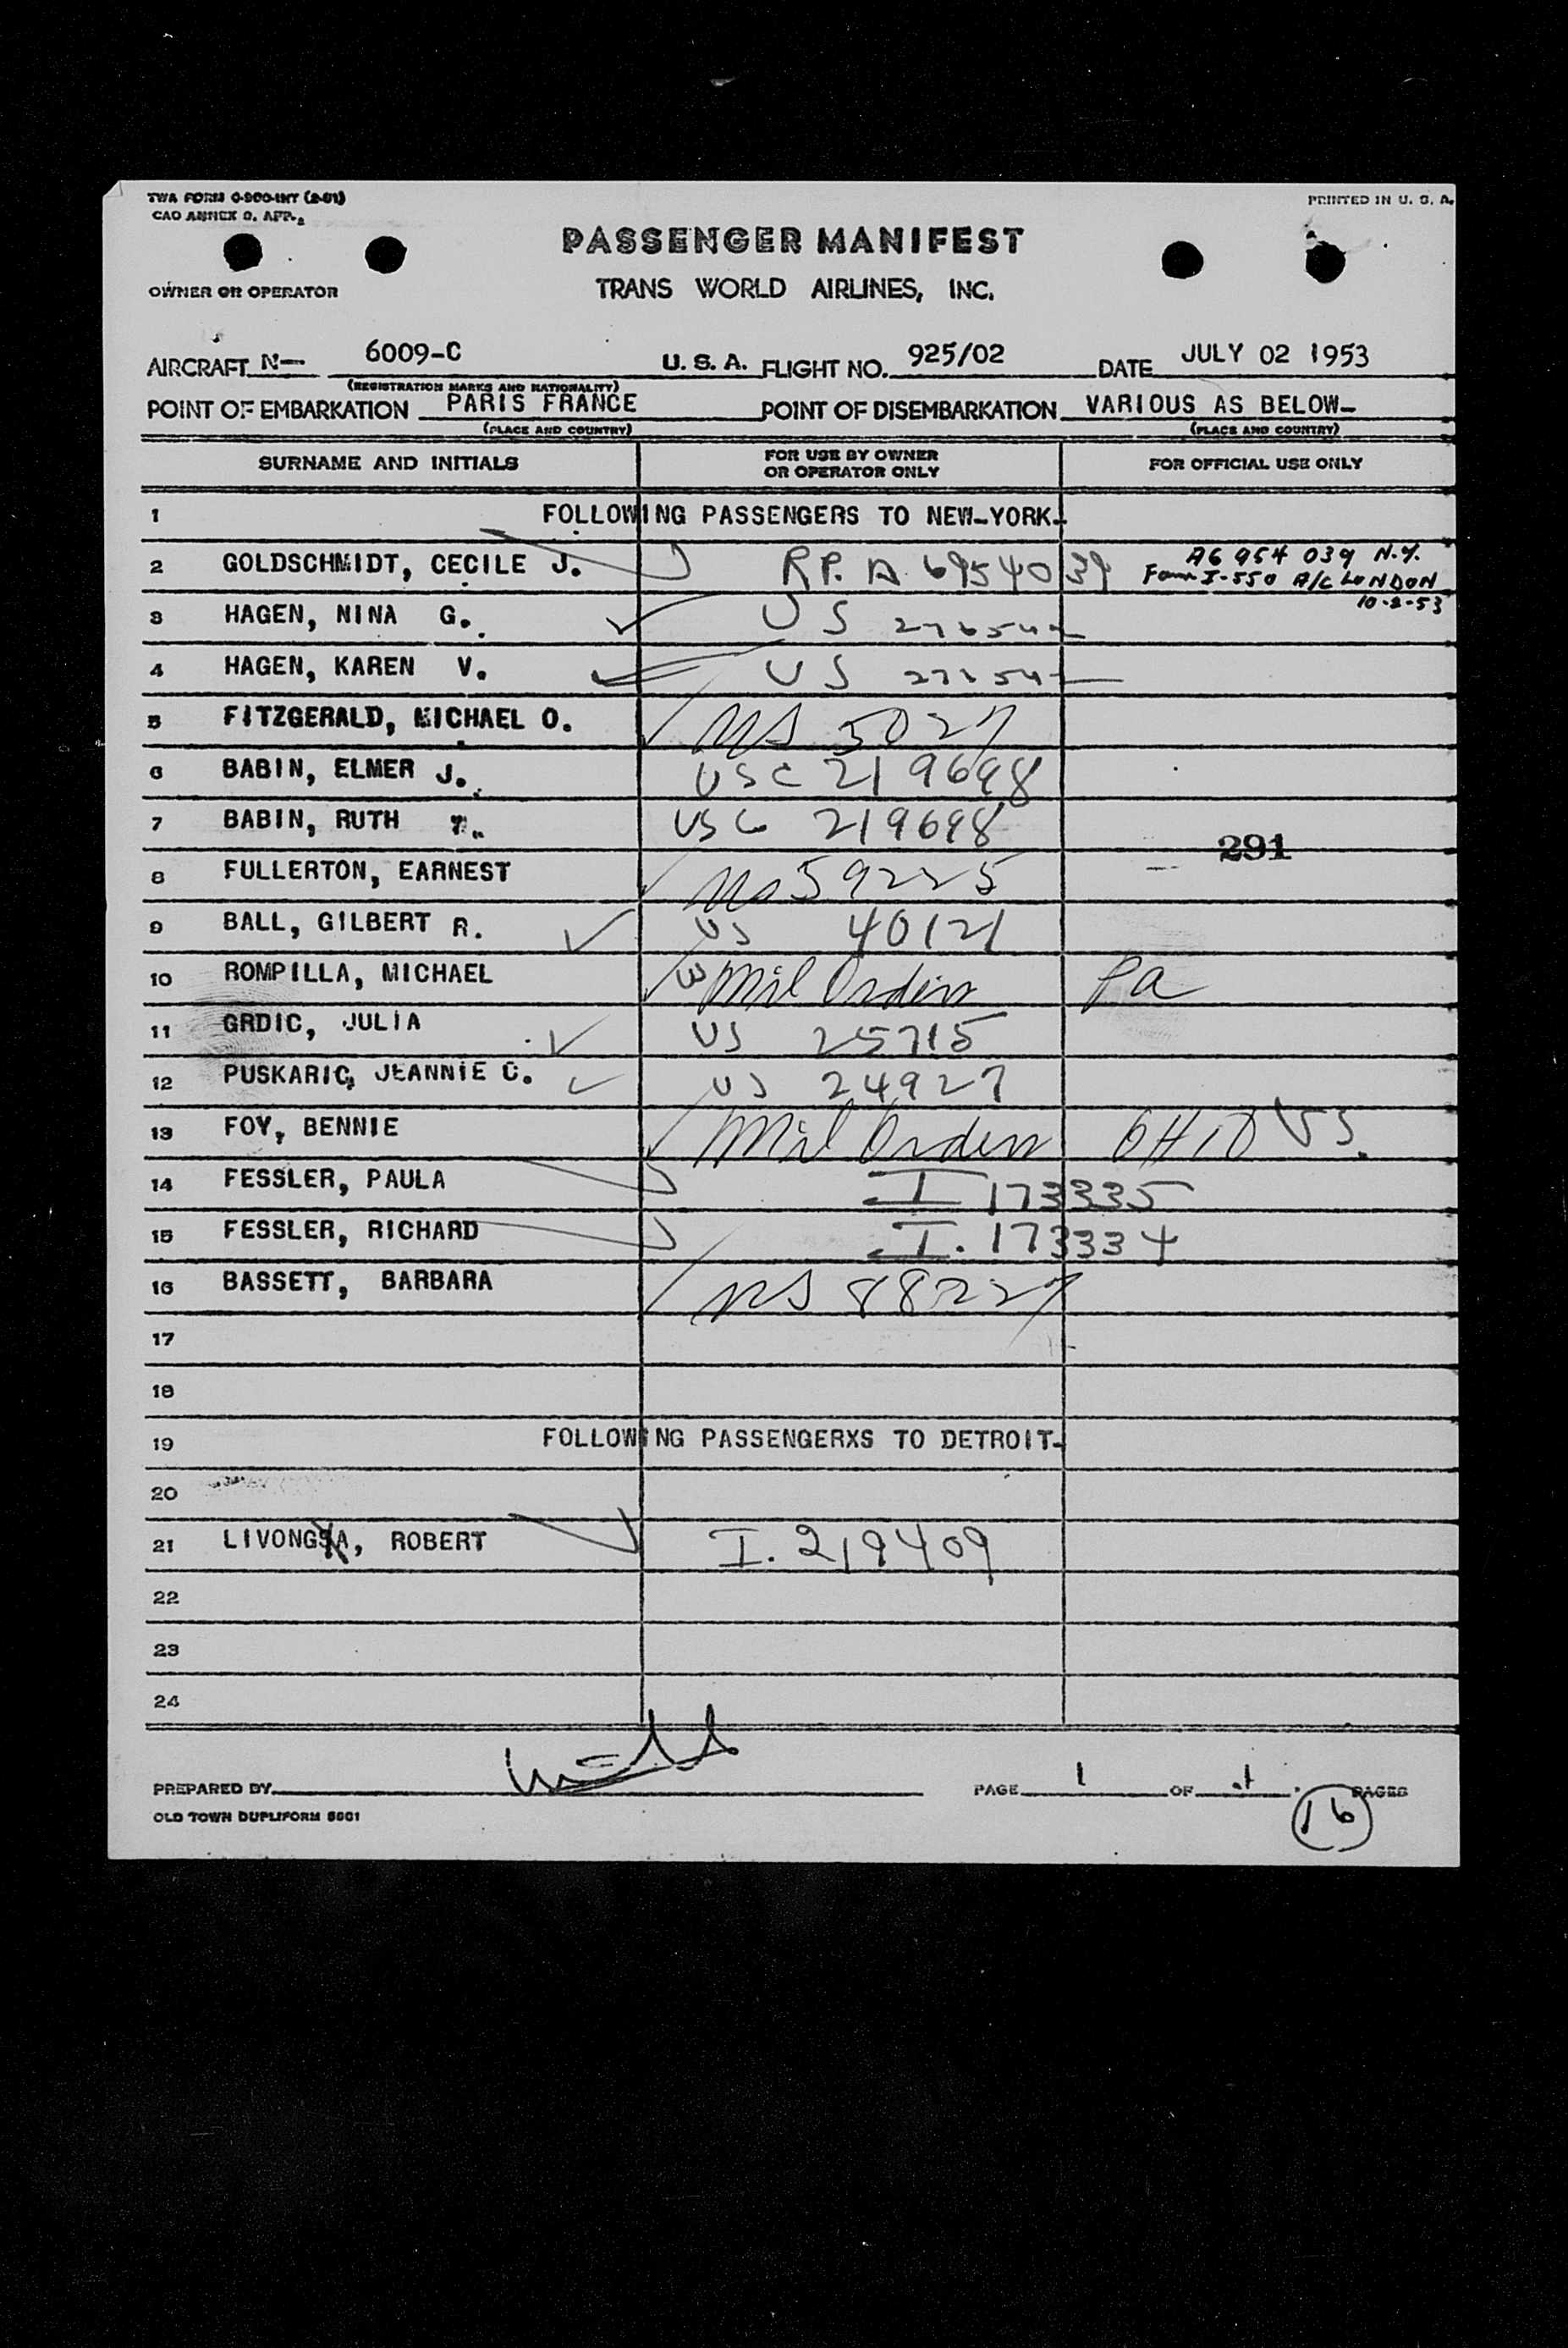 TWA FORM O-900-INT (2-51)
PRINTED IN U. S. A.
CAO ANNEX 9. APP.
PASSENGER MANIFEST
OWNER OR OPERATOR
TRANS WORLD AIRLINES, INC.
AIRCRAFT N— 6009-C U. S. A. FLIGHT NO. 925/02 DATE JULY 02 1953
(REGISTRATION MARKS AND NATIONALITY)
POINT OF EMBARKATION PARIS FRANCE POINT OF DISEMBARKATION VARIOUS AS BELOW-
(PLACE AND COUNTRY) (PLACE AND COUNTRY)
SURNAME AND INITIALS FOR USE BY OWNER OR OPERATOR ONLY FOR OFFICIAL USE ONLY
1 FOLLOWING PASSENGERS TO NEW-YORK-
2 GOLDSCHMIDT, CECILE J. R.P. A 6954039 A6 954 039 N.Y.
Form I-550 A/C LONDON
10-2-53
3 HAGEN, NINA G. US 276542
4 HAGEN, KAREN V. US
5 FITZGERALD, MICHAEL O. US 5027
6 BABIN, ELMER J. USC 219698
7 BABIN, RUTH USC 219698
291
8 FULLERTON, EARNEST US 59225
9 BALL, GILBERT R. US 40121
10 ROMPILLA, MICHAEL Mil Orders Pa
11 GRDIC, JULIA US 25715
12 PUSKARIC, JEANNIE C. US 24927
13 FOY, BENNIE Mil Orders OHIO US.
14 FESSLER, PAULA I 173335
15 FESSLER, RICHARD I. 173334
16 BASSETT, BARBARA US 88227
17
18
19 FOLLOWING PASSENGERXS TO DETROIT-
20
21 LIVONGSA, ROBERT I. 219409
22
23
24
PREPARED BY PAGE 1 OF PAGES
OLD TOWN DUPLIFORM 5601
16